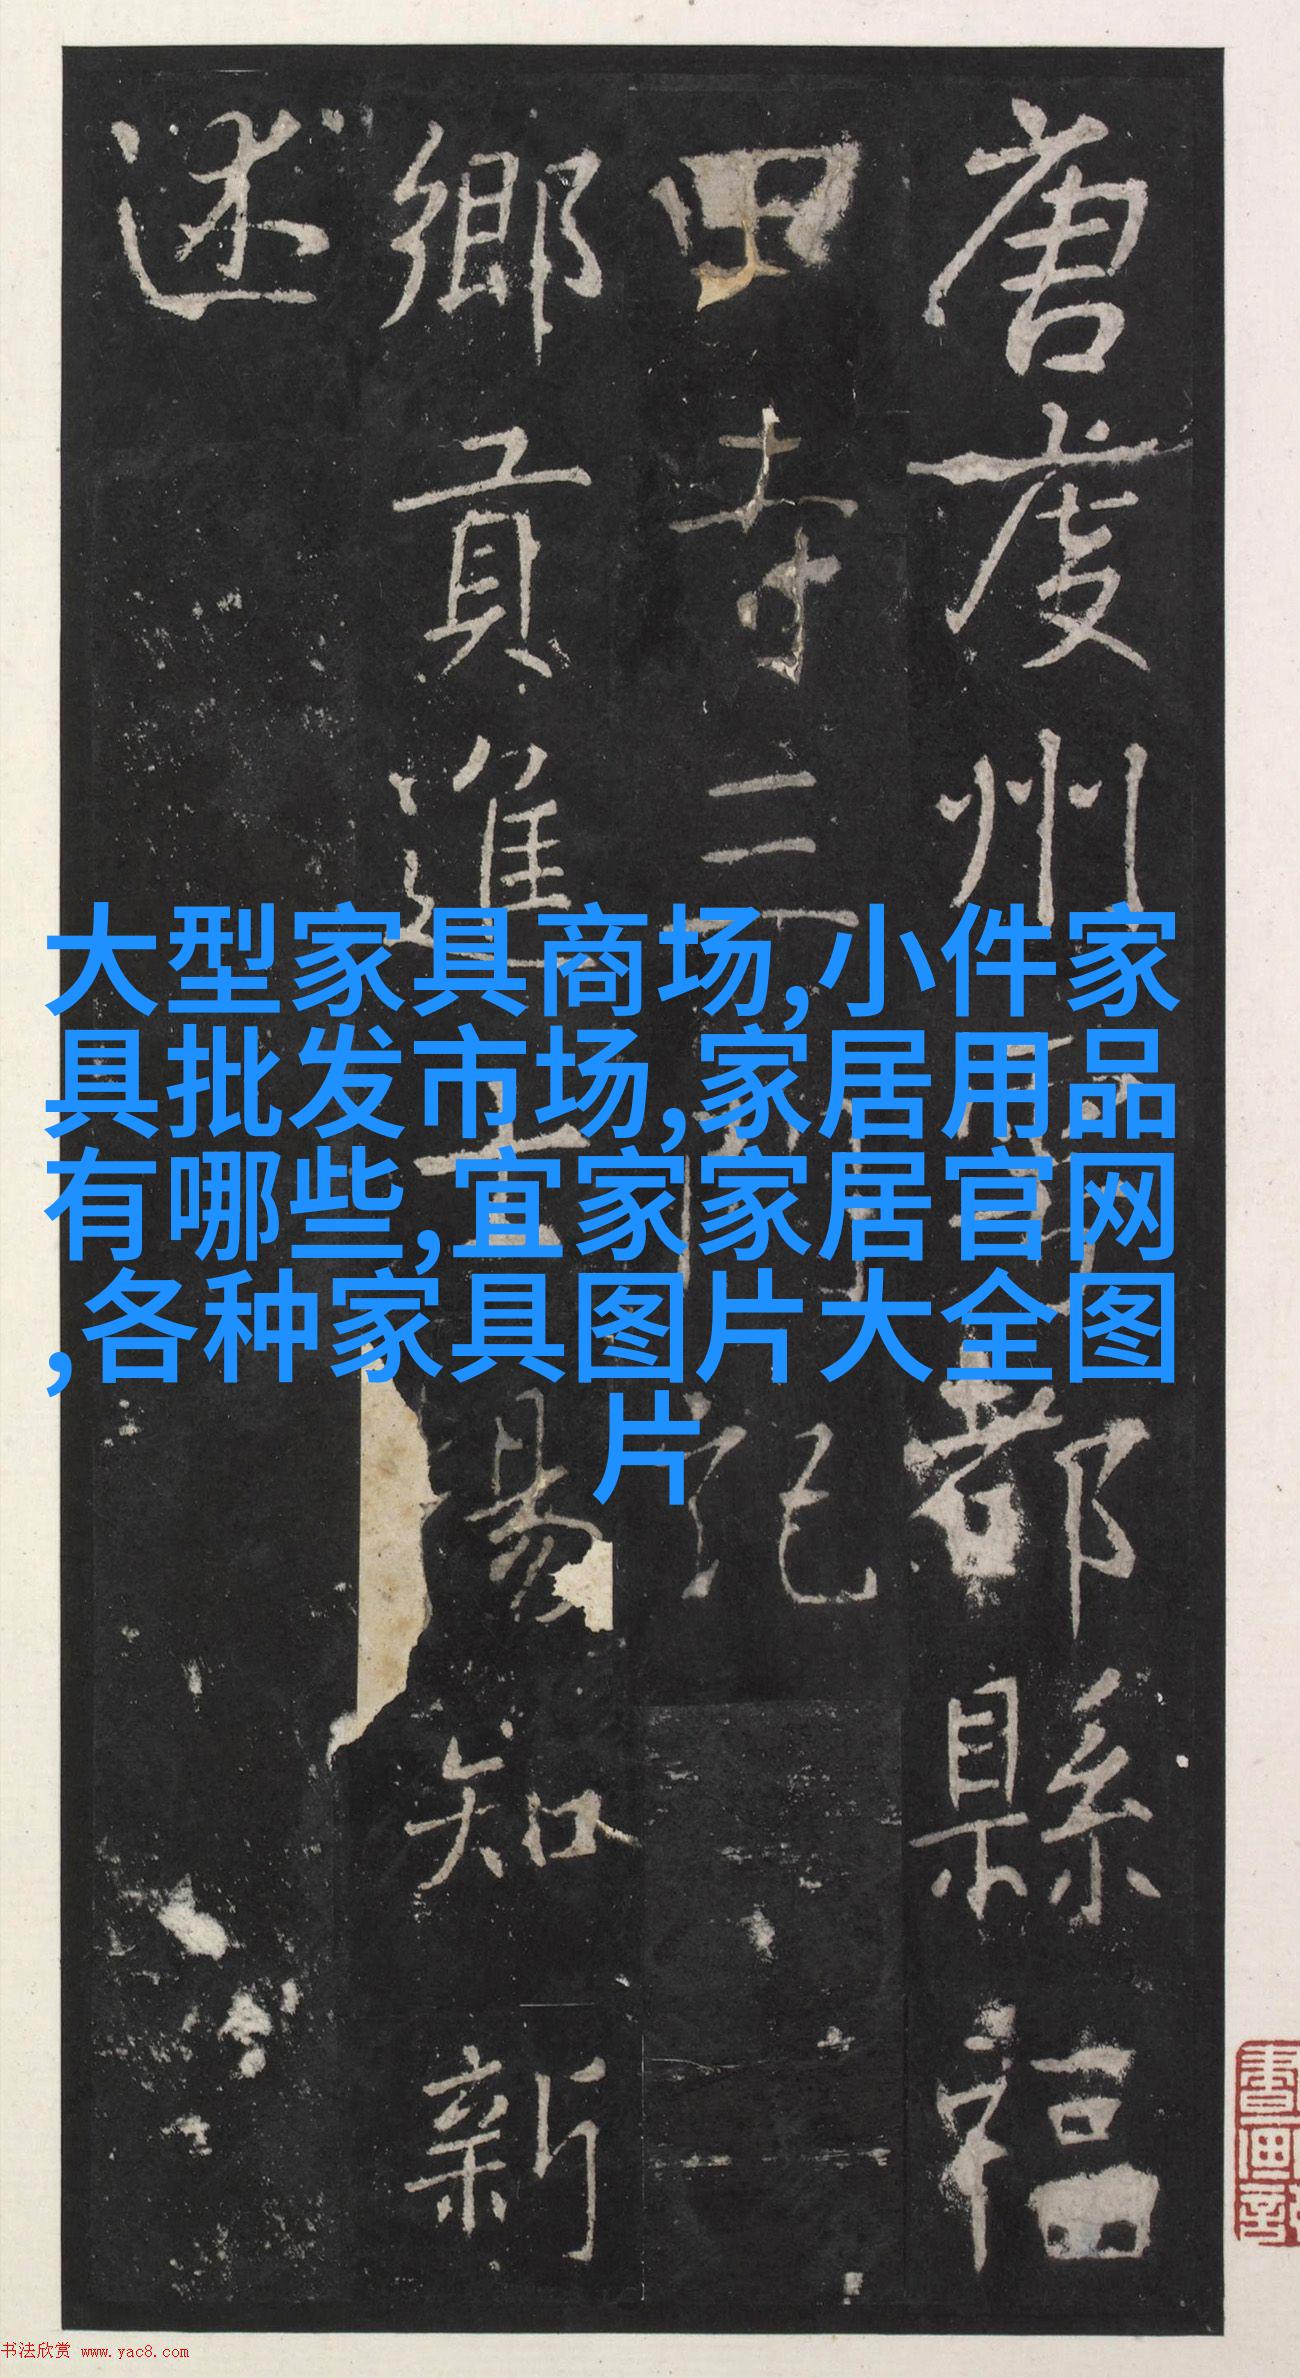 唐虔州雩都縣福
田寺三門記
鄉貢進士易知新
述
大型家具商场,小件家
具批发市场,家居用品
有哪些,宜家家居官网
,各种家具图片大全图
片
书法欣赏 www.yac8.com